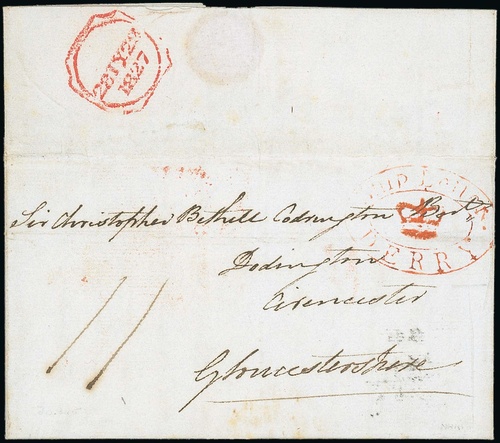 28 JY 28
1827
SHIP LETTER
DERRY
Sir Christopher Bethell Codrington Bart.
Dodington
Cirencester
Gloucestershire
11